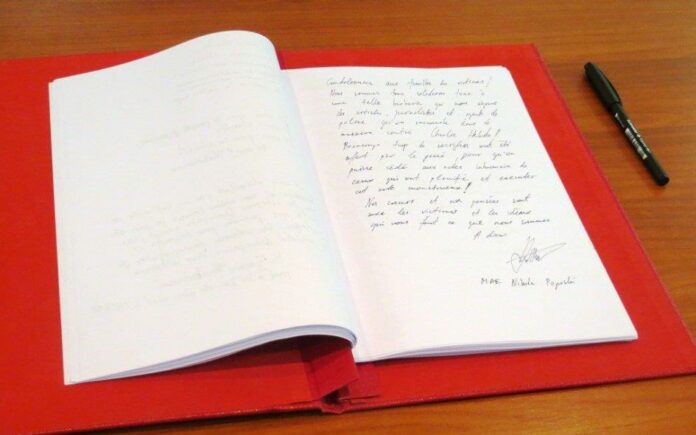 Condoleances aux familles des victimes!
Nous sommes tous solidaires face à
une telle barbarie, qui vous signe
des articles, journalistes et agents de
police, qu'un
massacre contre Charlie Hebdo!
Beaucoup trop de sacrifices ont été
offert par le passé, pour qu'on
puisse cédé aux actes inhumains de
ceux qui ont planifié et executer
cet acte monstrueux!
Nos coeurs et nos pensées sont
avec les victimes et les idéaux
qui nous font ce que nous sommes
MAE Nikola Poposki